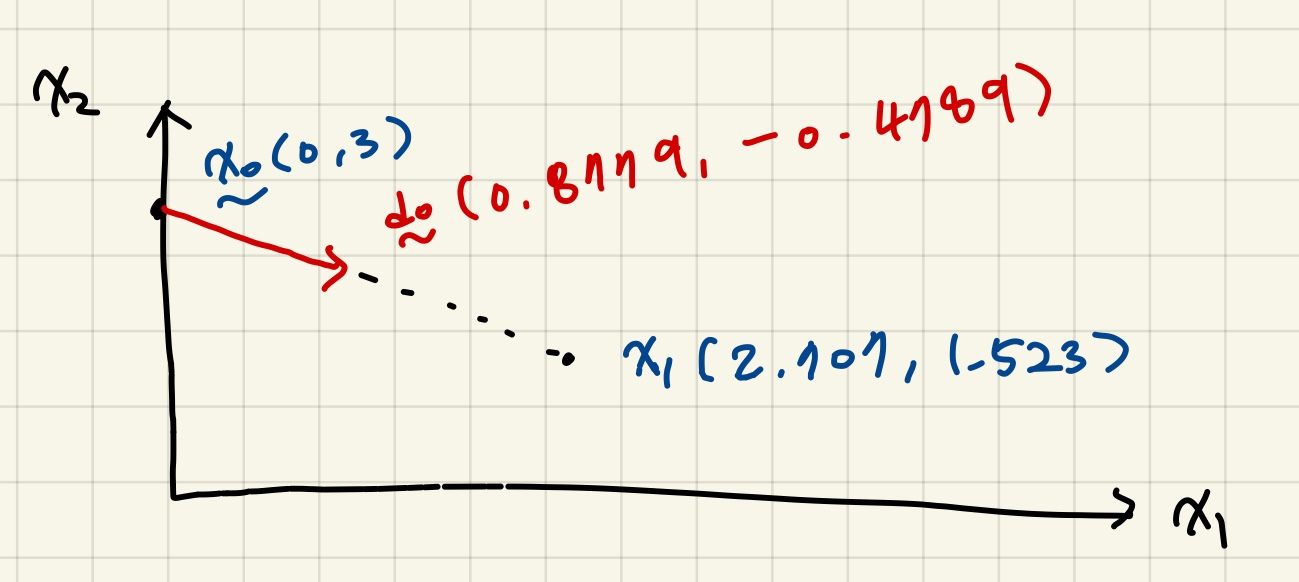 x₂
x₀(0,3)
d₀(0.8779, -0.4789)
x₁(2.707, 1.523)
x₁